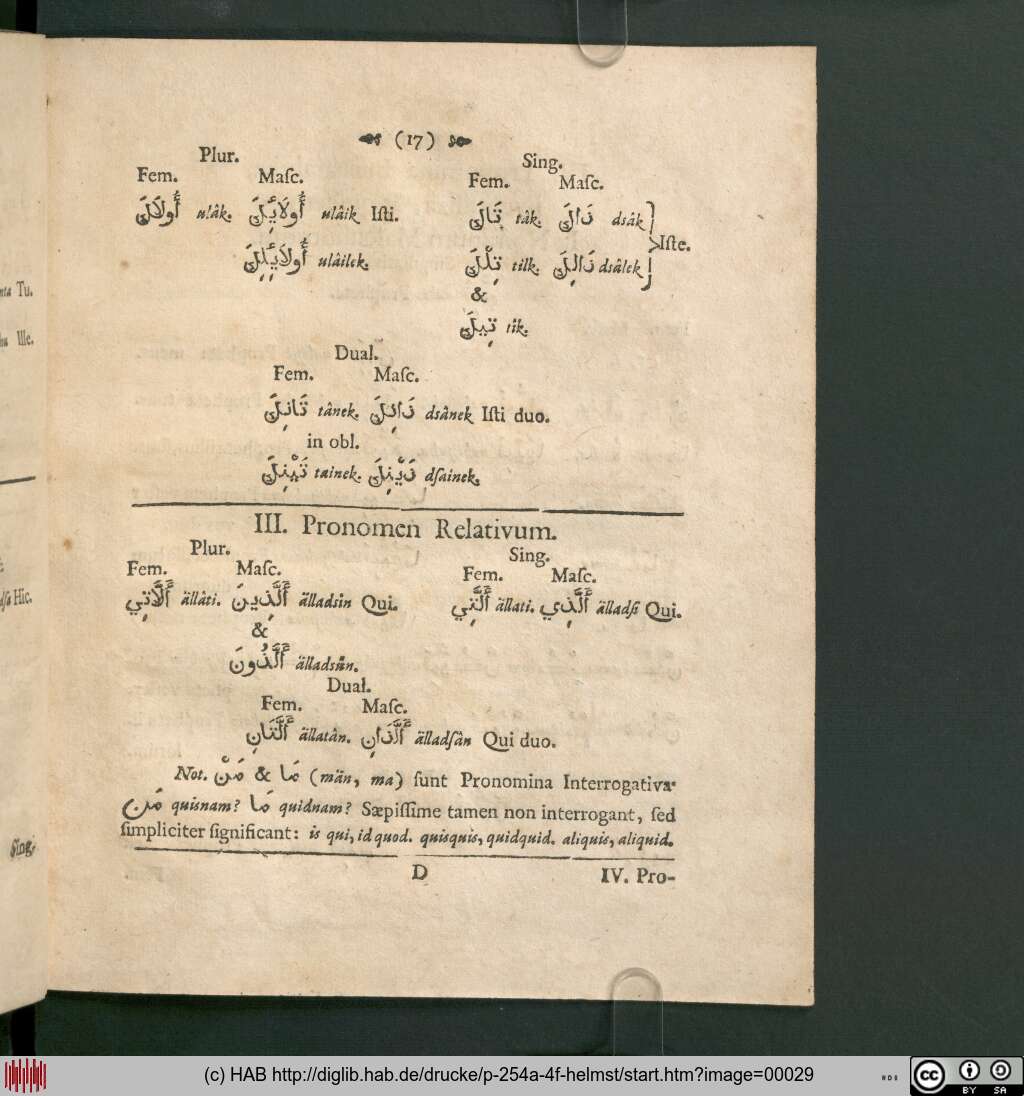 (17)
Plur.
Sing.
Fem. Maſc.
Fem. Maſc.
أُولَاكَ ulâk. أُولَائِكَ ulâik Iſti.
تَاكَ tâk. ذَاكَ dsâk
Iſte.
أُولَائِلِكَ ulâilek.
تِلْكَ tilk. ذَالِكَ dsâlek
&
تِيكَ tîk.
Dual.
Fem. Maſc.
تَانِكَ tânek. ذَانِكَ dsânek Iſti duo.
in obl.
تَيْنِكَ tainek. ذَيْنِكَ dſainek.
III. Pronomen Relativum.
Plur.
Sing.
Fem. Maſc.
Fem. Maſc.
أَلَّاتِي ällâti. أَلَّذِينَ älladsîn Qui.
أَلَّتِي ällati. أَلَّذِي älladſi Qui.
&
أَلَّذُونَ älladsûn.
Dual.
Fem. Maſc.
أَلَّتَانِ ällatân. أَلَّذَانِ älladſân Qui duo.
Not. مَنْ & مَا (män, ma) ſunt Pronomina Interrogativa.
مَن quisnam? مَا quidnam? Sæpiſſime tamen non interrogant, ſed
ſimpliciter ſignificant: is qui, id quod. quisquis, quidquid. aliquis, aliquid.
D IV. Pro-
Tu.
Ille.
Hic.
Sing.
(c) HAB http://diglib.hab.de/drucke/p-254a-4f-helmst/start.htm?image=00029
cc BY SA